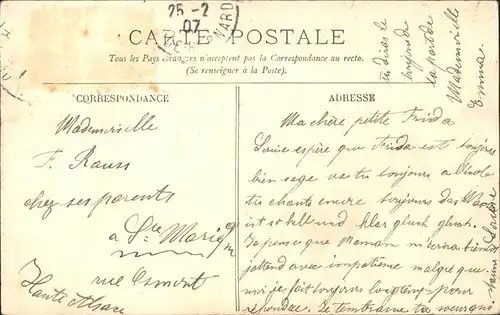 25-2
07
CARTE POSTALE
Tous les Pays étrangers n'acceptent pas la Correspondance au recto.
(Se renseigner à la Poste).
CORRESPONDANCE
ADRESSE
Mademoiselle
F. Rauss
chez ses parents
à Ste Marie
rue
Haute Alsace
Ma chère petite Frida
espère que Frida est toujours
bien sage vas tu toujours a l'école
tu chante encore toujours das
ist so hell und klar gluck gluck.
Je pense que Maman m'écrira bientôt
j'attend avec impatience malgré que
moi je fait toujours longtemps pour
répondre. Je t'embrasse ta soeur qui
tu diras le
bonjour de
la part de
Mademoiselle
Emma